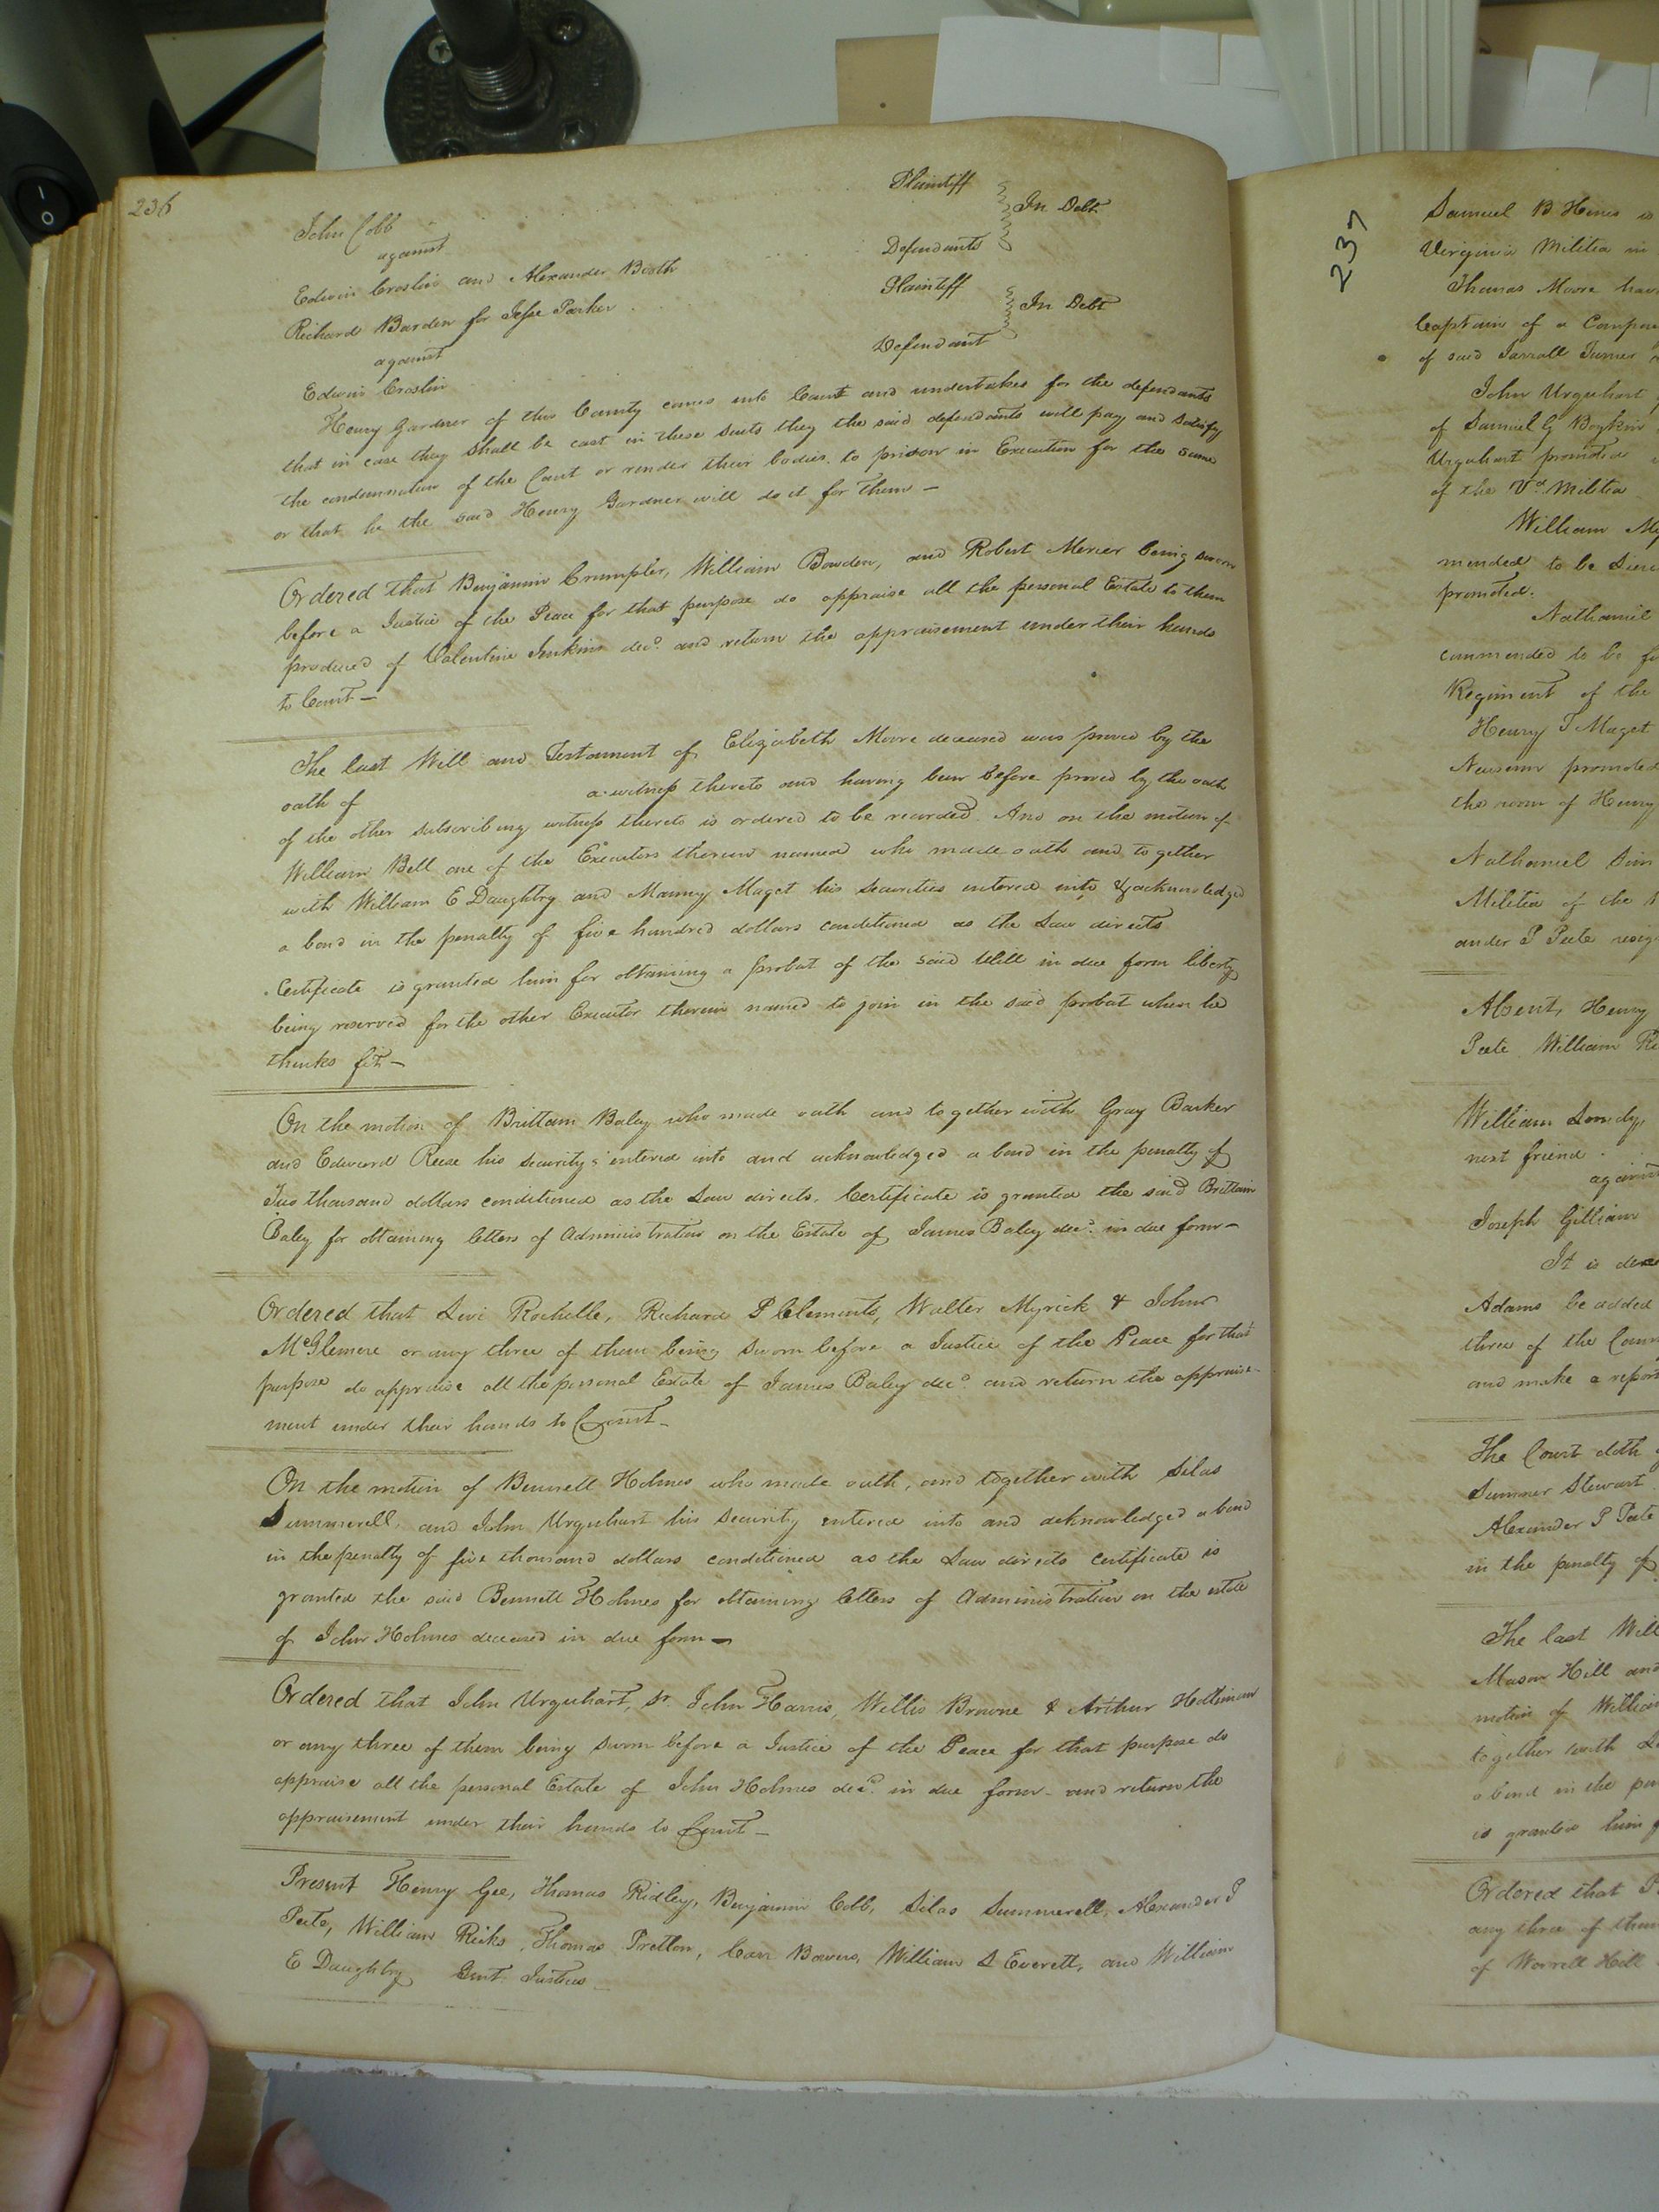 236
John Cobb Plaintiff
against In Debt
Edwin Croslin and Alexander Booth Defendants
Richard Barden for Jesse Parker Plaintiff
against In Debt
Edwin Croslin Defendant
Henry Gardner of this County comes into Court and undertakes for the defendants
that in case they shall be cast in these suits they the said defendants will pay and satisfy
the condemnation of the Court or render their bodies to prison in Execution for the same
or that he the said Henry Gardner will do it for them –
Ordered that Benjamin Crumpler, William Bowden, and Robert Mercer being sworn
before a Justice of the Peace for that purpose do appraise all the personal Estate to them
produced of Valentine Jenkins decd. and return the appraisement under their hands
to Court –
The last Will and Testament of Elizabeth Moore deceased was proved by the
oath of a witness thereto and having been before proved by the oath
of the other subscribing witness thereto is ordered to be recorded. And on the motion of
William Bell one of the Executors therein named who made oath and together
with William E Daughtry and Manny Maget his securities entered into & acknowledged
a bond in the penalty of five hundred dollars conditioned as the Law directs
Certificate is granted him for obtaining a probat of the said Will in due form liberty
being reserved for the other Executor therein named to join in the said probat when he
thinks fit –
On the motion of Brittain Baley who made oath and together with Gray Barker
and Edward Reese his security's entered into and acknowledged a bond in the penalty of
Two thousand dollars conditioned as the Law directs. Certificate is granted the said Brittain
Baley for obtaining letters of Administration on the Estate of James Baley decd. in due form –
Ordered that Levi Rochelle, Richard P Clements, Walter Myrick & John
McGlemere or any three of them being sworn before a Justice of the Peace for that
purpose do appraise all the personal Estate of James Baley decd. and return the appraise-
ment under their hands to Court –
On the motion of Bennett Holmes who made oath, and together with Silas
Summerell, and John Urquhart his security entered into and acknowledged a bond
in the penalty of five thousand dollars conditioned as the Law directs certificate is
granted the said Bennett Holmes for obtaining letters of Administration on the estate
of John Holmes deceased in due form –
Ordered that John Urquhart, Sr. John Harris, Willis Browne & Arthur Holliman
or any three of them being sworn before a Justice of the Peace for that purpose do
appraise all the personal Estate of John Holmes decd. in due form – and return the
appraisement under their hands to Court –
Present Henry Gee, Thomas Ridley, Benjamin Cobb, Silas Summerell, Alexander P
Peete, William Ricks, Thomas Pretlow, Carr Bowers, William D Everett, and William
E Daughtry Gent. Justices
237
Samuel B Hines is
Virginia Militia in
Thomas Moore hav
Captain of a Compa
of said Jarrall Turner
John Urquhart
of Samuel G Boykin
Urquhart promoted
of the Va. Militia
William My
mended to be Lieu
promoted.
Nathaniel
commended to be
Regiment of the
Henry T Maget
Newsom promoted
the room of Henry
Nathaniel Sim
Militia of the
ander P Peete resig
Absent, Henry
Peete William Ri
William
next friend
against
Joseph Gilliam
It is
Adams be added
three of the Com
and make a report
The Court doth
Sumner Stewart
Alexander P Peete
in the penalty of
The last Will
Mason Hill and
motion of William
together with
a bond in the pen
is granted him
Ordered that
any three of them
of Worrell Hill